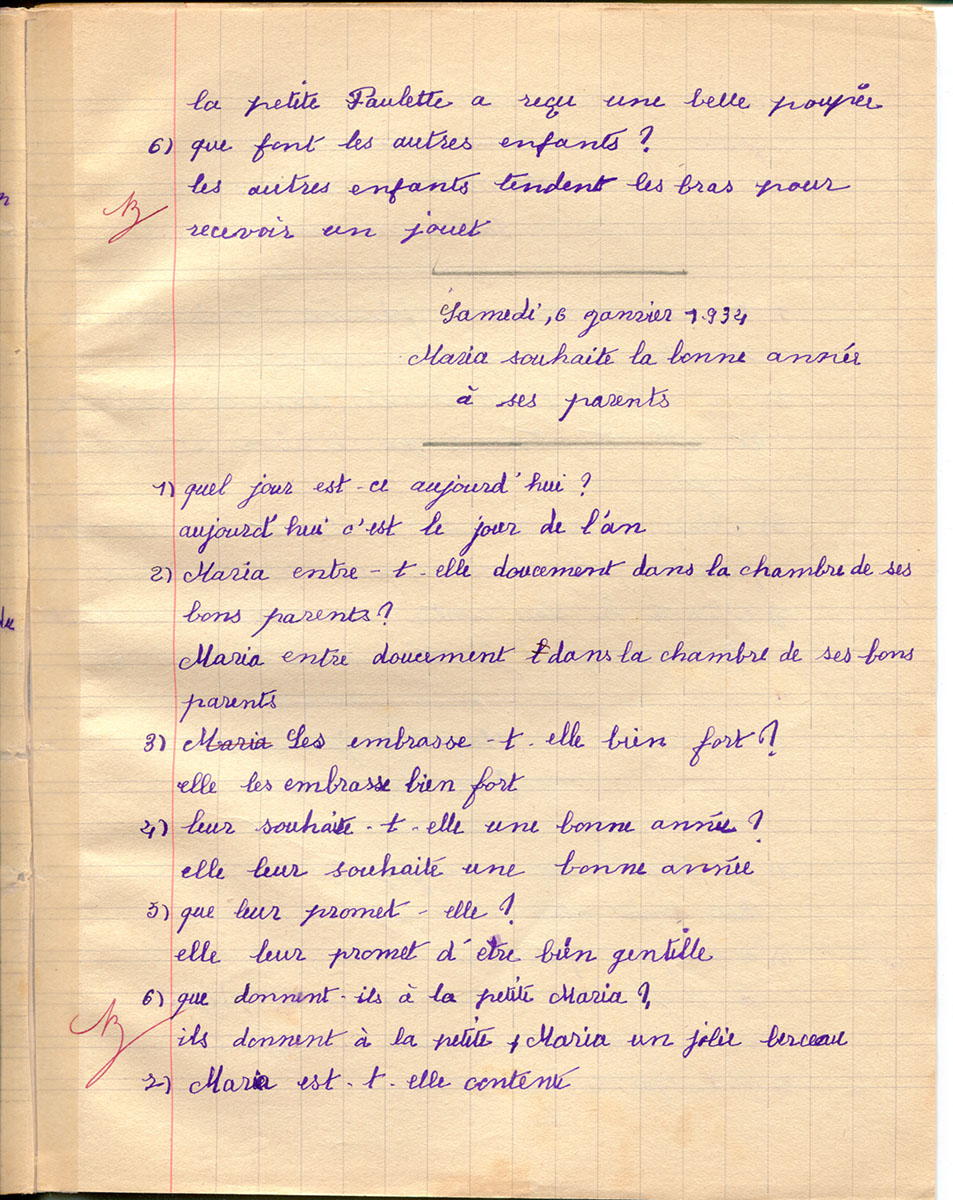 la petite Paulette a reçu une belle poupée
6) que font les autres enfants ?
les autres enfants tendent les bras pour
recevoir un jouet
Samedi, 6 janvier 1934
Maria souhaite la bonne année
à ses parents
1) quel jour est-ce aujourd'hui ?
aujourd'hui c'est le jour de l'an
2) Maria entre-t-elle doucement dans la chambre de ses
bons parents ?
Maria entre doucement dans la chambre de ses bons
parents
3) Maria Les embrasse-t-elle bien fort ?
elle les embrasse bien fort
4) leur souhaite-t-elle une bonne année ?
elle leur souhaite une bonne année
5) que leur promet-elle ?
elle leur promet d'être bien gentille
6) que donnent-ils à la petite Maria ?
ils donnent à la petite Maria un jolie berceau
7) Maria est-t-elle contente